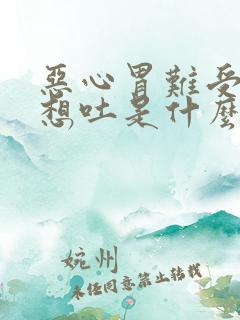 惡心胃難受
想吐是什麼
婉州
未任同意禁止转载